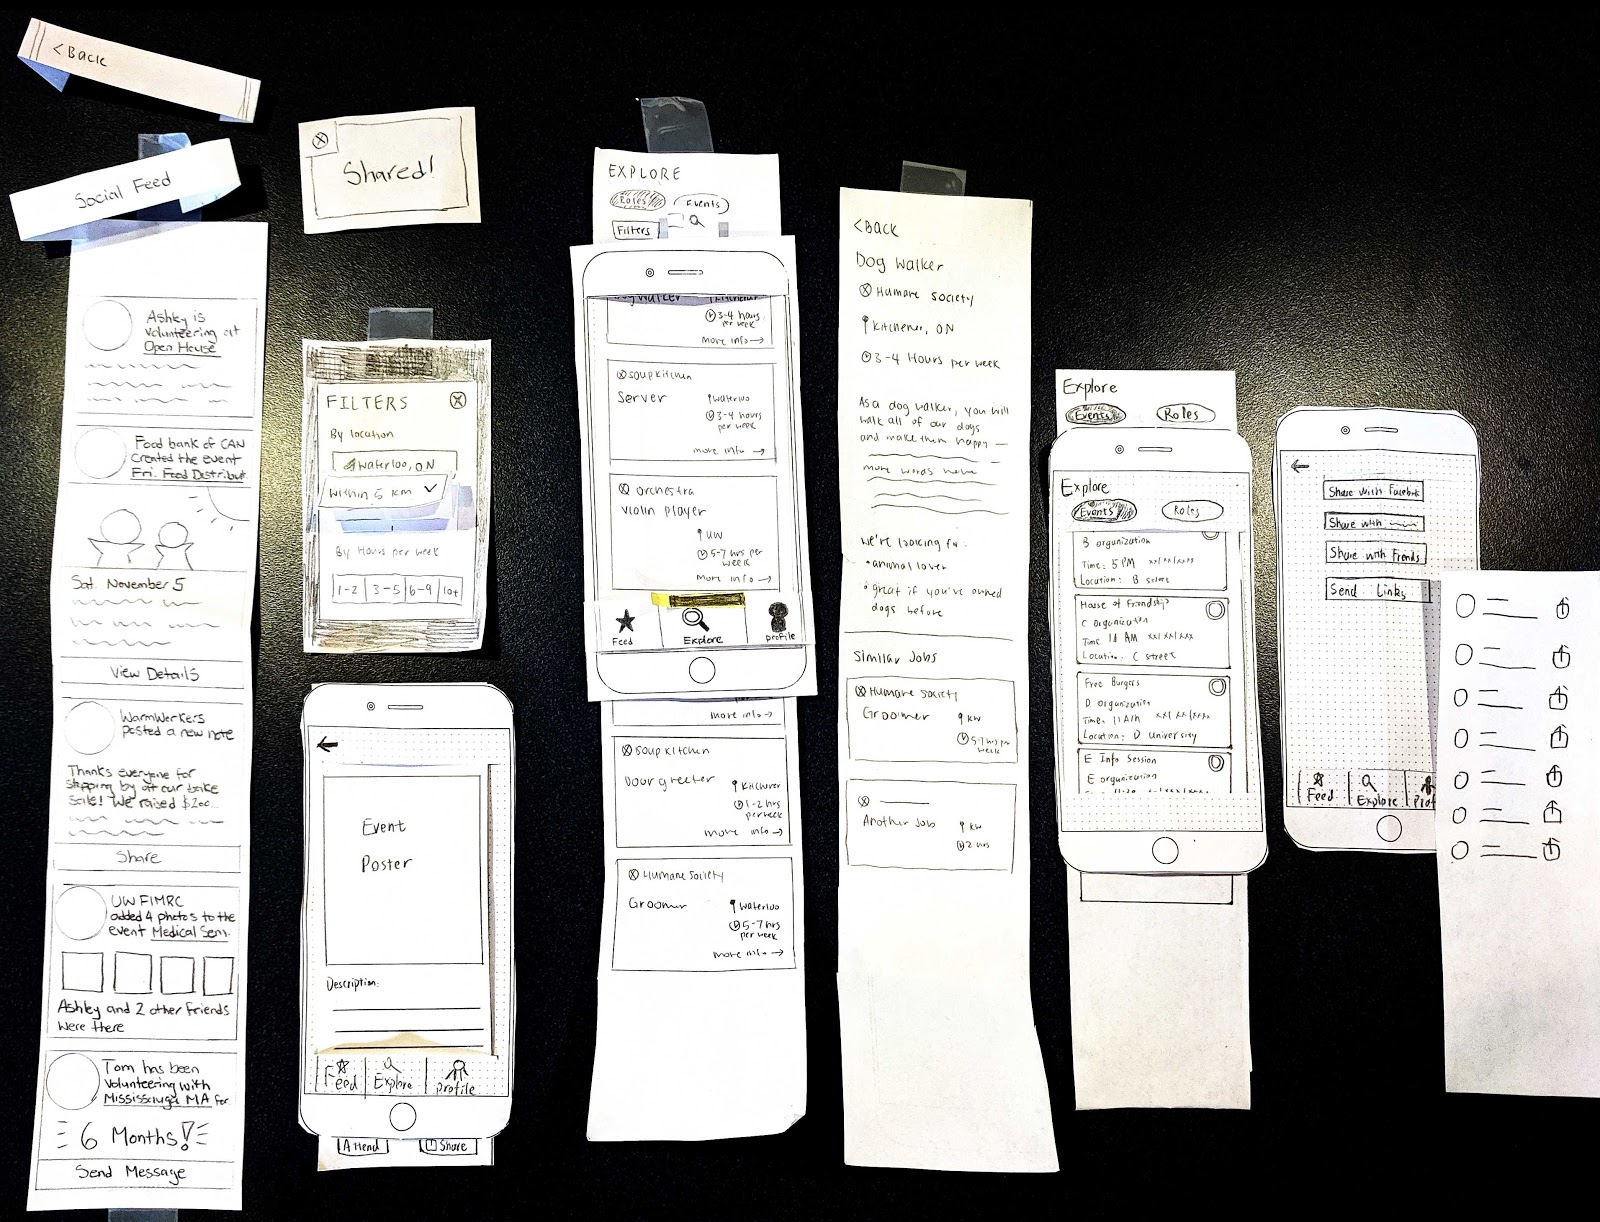 <Back
Social Feed
Ashley is
volunteering at
Open House
Food bank of CAN
Created the event
Fri. Feed Distribut.
Sat November 5
View Details
WarmWerkers
posted a new note
Thanks everyone for
stopping by at our bake
sale! We raised $200...
Share
UW FIMRC
added 4 photos to the
event Medical Sem.
Ashley and 2 other friends
were there
Tom has been
volunteering with
Mississauga MA for
6 Months!
Send Message
Shared!
FILTERS
By location
Waterloo, ON
Within 5 km
By Hours per week
1-2 3-5 6-9 10+
Event
Poster
Description:
Feed Explore Profile
Attend Share
EXPLORE
Roles Events
Filters
Dog Walker Kitchener
3-4 hours
per week
more info →
Soup kitchen
Server
Waterloo
3-4 hours
per week
more info →
Orchestra
Violin player
UW
5-7 hrs per
week
more info →
Feed Explore Profile
more info →
Soup kitchen
Door greeter
Kitchener
1-2 hrs
per week
more info →
Humane Society
Groomer
Waterloo
5-7 hrs
per week
more info →
<Back
Dog Walker
Humane Society
Kitchener, ON
3-4 Hours per week
As a dog walker, you will
walk all of our dogs
and make them happy —
more words here
We're looking for:
• animal lover
• great if you've owned
dogs before
Similar Jobs
Humane Society
Groomer
KW
5-7 hrs per
week
Another Job
KW
2 hrs
Explore
Events Roles
Explore
Events Roles
B organization
Time: 5 PM xx/xx/xxxx
Location: B street
House of Friendship
C organization
Time: 11 AM xx/xx/xxx
Location: C street
Free Burgers
D organization
Time: 11 AM xx/xx/xxxx
Location: D university
E Info Session
E organization
Share with Facebook
Share with
Share with Friends
Send Links
Feed Explore Prof